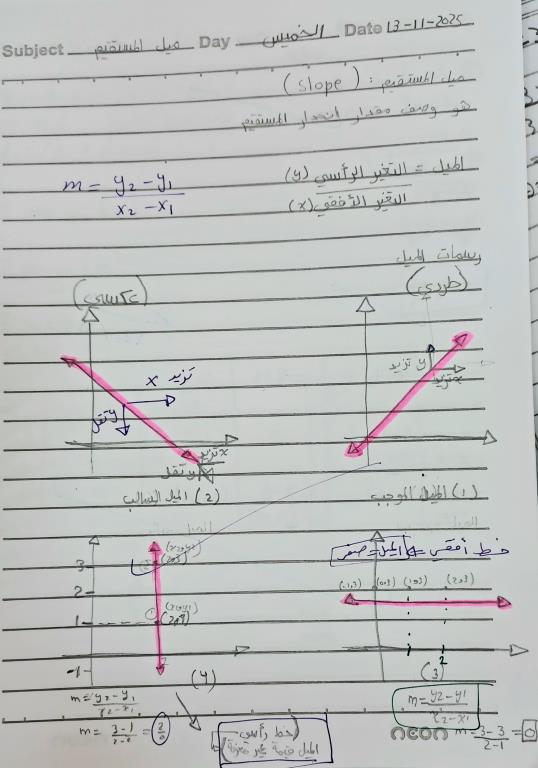 Subject ميل المستقيم Day الخميس Date 13-11-2025
ميل المستقيم : (slope)
هو وصف مقدار انحدار المستقيم
الميل = التغير الرأسي (y)
التغير الأفقي (x)
m = y₂ - y₁
x₂ - x₁
رسمات الميل
(طردي)
(عكسي)
y تزيد
x تزيد
تزيد x
y تقل
x تزيد
y تقل
(1) الميل الموجب
(2) الميل السالب
خط أفقي الميل = صفر
(-1,3) (0,3) (1,3) (2,3)
2
(3)
m = y₂ - y₁
x₂ - x₁
m = 3 - 3
2 - 1
= 0
3
2
1
-1
(2,3)
(4)
m = y₂ - y₁
x₂ - x₁
m = 3 - 1
2 - 2
= 2
0
خط رأسي
الميل قيمة غير معرفة
neon